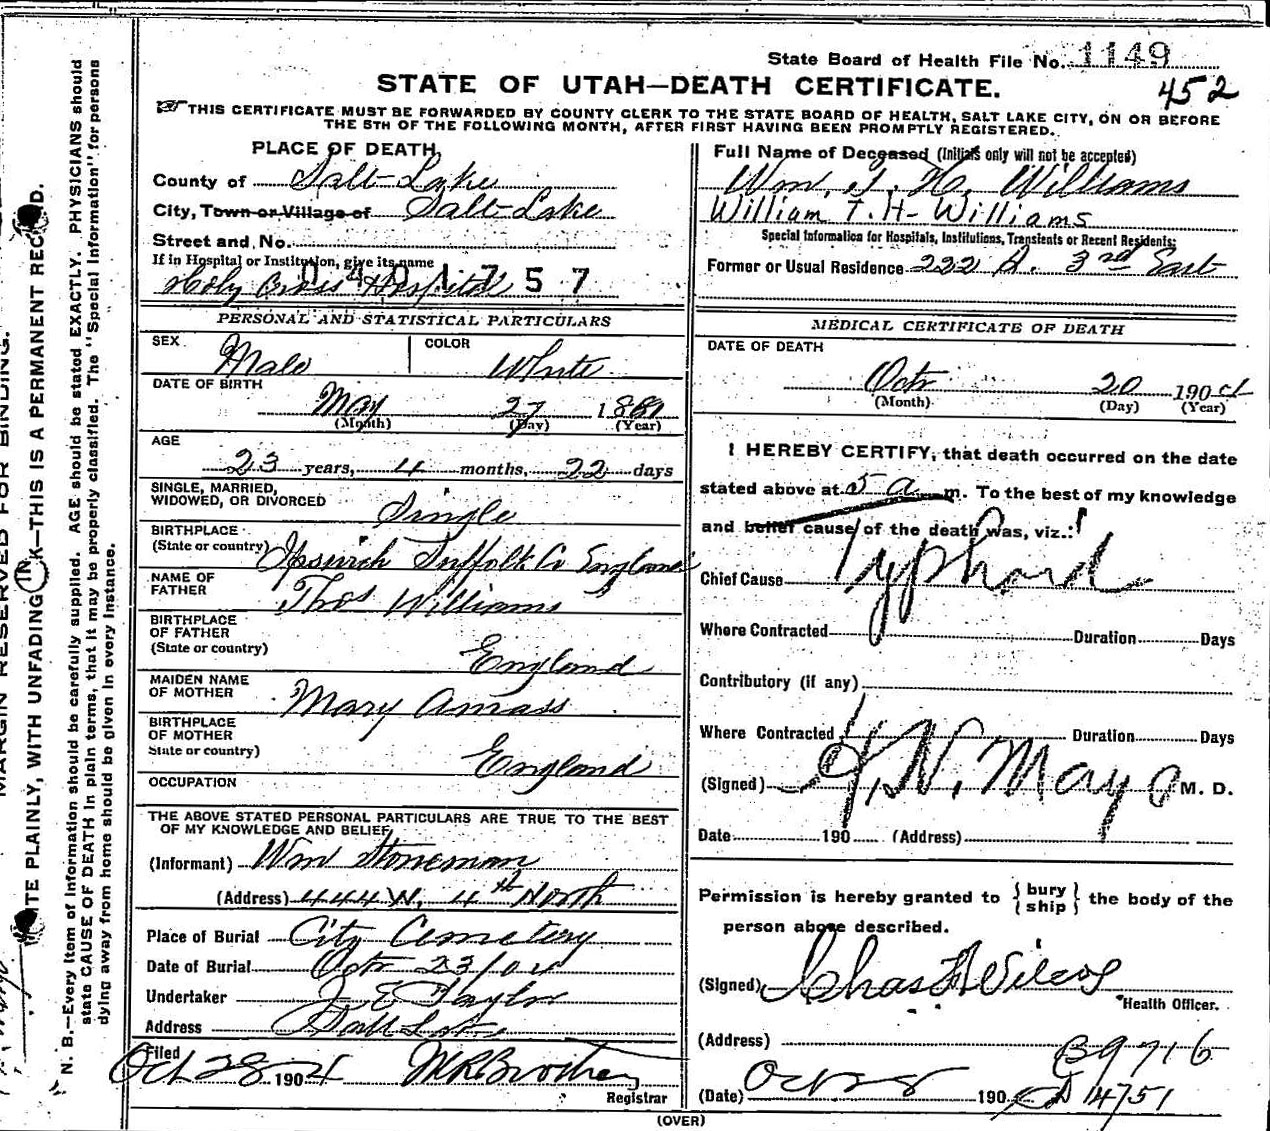 State Board of Health File No. 1149
STATE OF UTAH—DEATH CERTIFICATE.
452
THIS CERTIFICATE MUST BE FORWARDED BY COUNTY CLERK TO THE STATE BOARD OF HEALTH, SALT LAKE CITY, ON OR BEFORE
THE 5TH OF THE FOLLOWING MONTH, AFTER FIRST HAVING BEEN PROMPTLY REGISTERED.
PLACE OF DEATH,
County of Salt Lake
City, Town or Village of Salt Lake
Street and No.
If in Hospital or Institution, give its name
Holy Cross Hospital
0401757
Full Name of Deceased (Initials only will not be accepted)
Wm. T. H. Williams
William T. H. Williams
Special Information for Hospitals, Institutions, Transients or Recent Residents:
Former or Usual Residence 222 3rd East
PERSONAL AND STATISTICAL PARTICULARS
SEX Male
COLOR White
DATE OF BIRTH
May 27 1881
(Month) (Day) (Year)
AGE
23 years, 4 months, 22 days
SINGLE, MARRIED,
WIDOWED, OR DIVORCED Single
BIRTHPLACE
(State or country) Ipswich Suffolk Co England
NAME OF
FATHER Thos Williams
BIRTHPLACE
OF FATHER
(State or country) England
MAIDEN NAME
OF MOTHER Mary Amass
BIRTHPLACE
OF MOTHER
State or country) England
OCCUPATION
THE ABOVE STATED PERSONAL PARTICULARS ARE TRUE TO THE BEST
OF MY KNOWLEDGE AND BELIEF,
(Informant) Wm Stoneman
(Address) 444 W. 4th North
Place of Burial City Cemetery
Date of Burial Octr 23/04
Undertaker J. E. Taylor
Address Salt Lake
Filed
Oct 28 1904
Registrar
MEDICAL CERTIFICATE OF DEATH
DATE OF DEATH
Octr 20 1904
(Month) (Day) (Year)
I HEREBY CERTIFY, that death occurred on the date
stated above at 5 a m. To the best of my knowledge
and belief cause of the death was, viz.:
Chief Cause Typhoid
Where Contracted Duration Days
Contributory (if any)
Where Contracted Duration Days
(Signed) H. N. Mayo M. D.
Date 190 (Address)
Permission is hereby granted to { bury ship } the body of the
person above described.
(Signed) Chas Wilcox
Health Officer.
(Address)
B 9716
(Date) Oct 190
D 14751
(OVER)
MARGIN RESERVED FOR BINDING.
WRITE PLAINLY, WITH UNFADING INK—THIS IS A PERMANENT RECORD.
N. B.—Every item of information should be carefully supplied. AGE should be stated EXACTLY. PHYSICIANS should
state CAUSE OF DEATH in plain terms, that it may be properly classified. The "Special Information" for persons
dying away from home should be given in every instance.